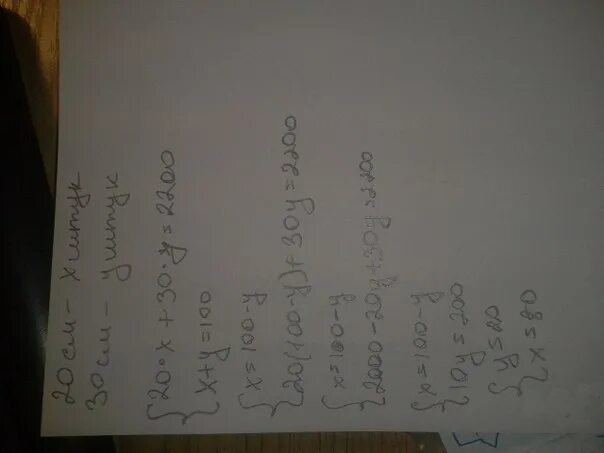 20 см - x штук
30 см - y штук
20·x + 30·y = 2200
x+y=100
x=100-y
20(100-y)+30y=2200
x=100-y
2000-20y+30y=2200
x=100-y
10y=200
y=20
x=80